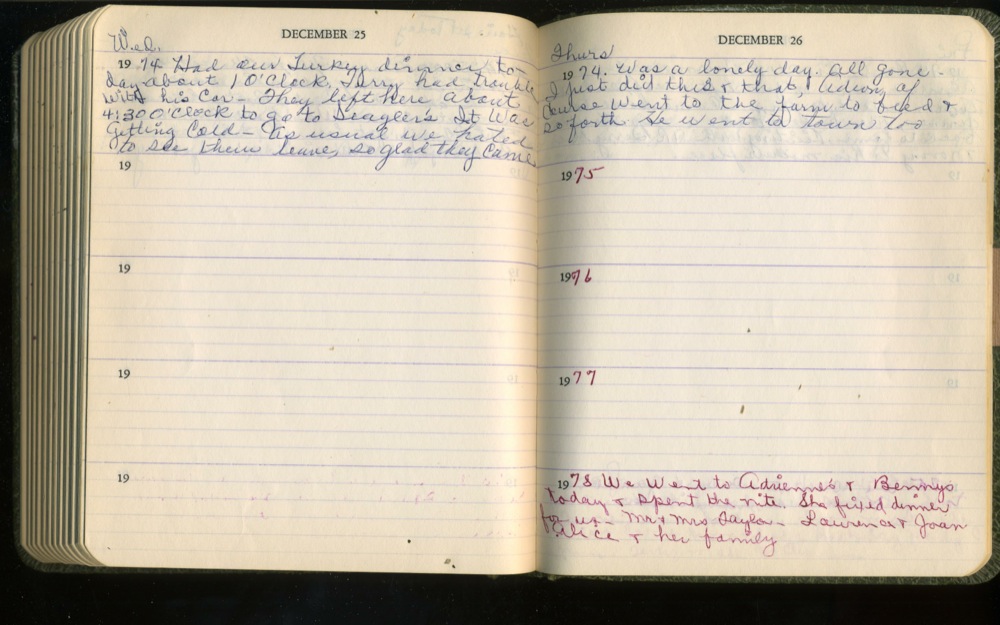 DECEMBER 25
Wed.
1974 Had our Turkey dinner to-
day about 1 O'Clock, Terry had trouble
with his Car - They left here about
4:30 O'Clock to go to Seagler's It Was
getting Cold - as usual we hated
to see them leave, so glad they Came
19
19
19
19
DECEMBER 26
Thurs
1974. Was a lonely day. All gone
I just did this & that, of
Course Went to the farm to feed &
so forth He went to town too
1975
1976
1977
1978 We Went to Adriennes & Bennys
today & spent the nite. She fixed dinner
for us - Mr & Mrs Taylor - Laurence & Joan
Alice & her family